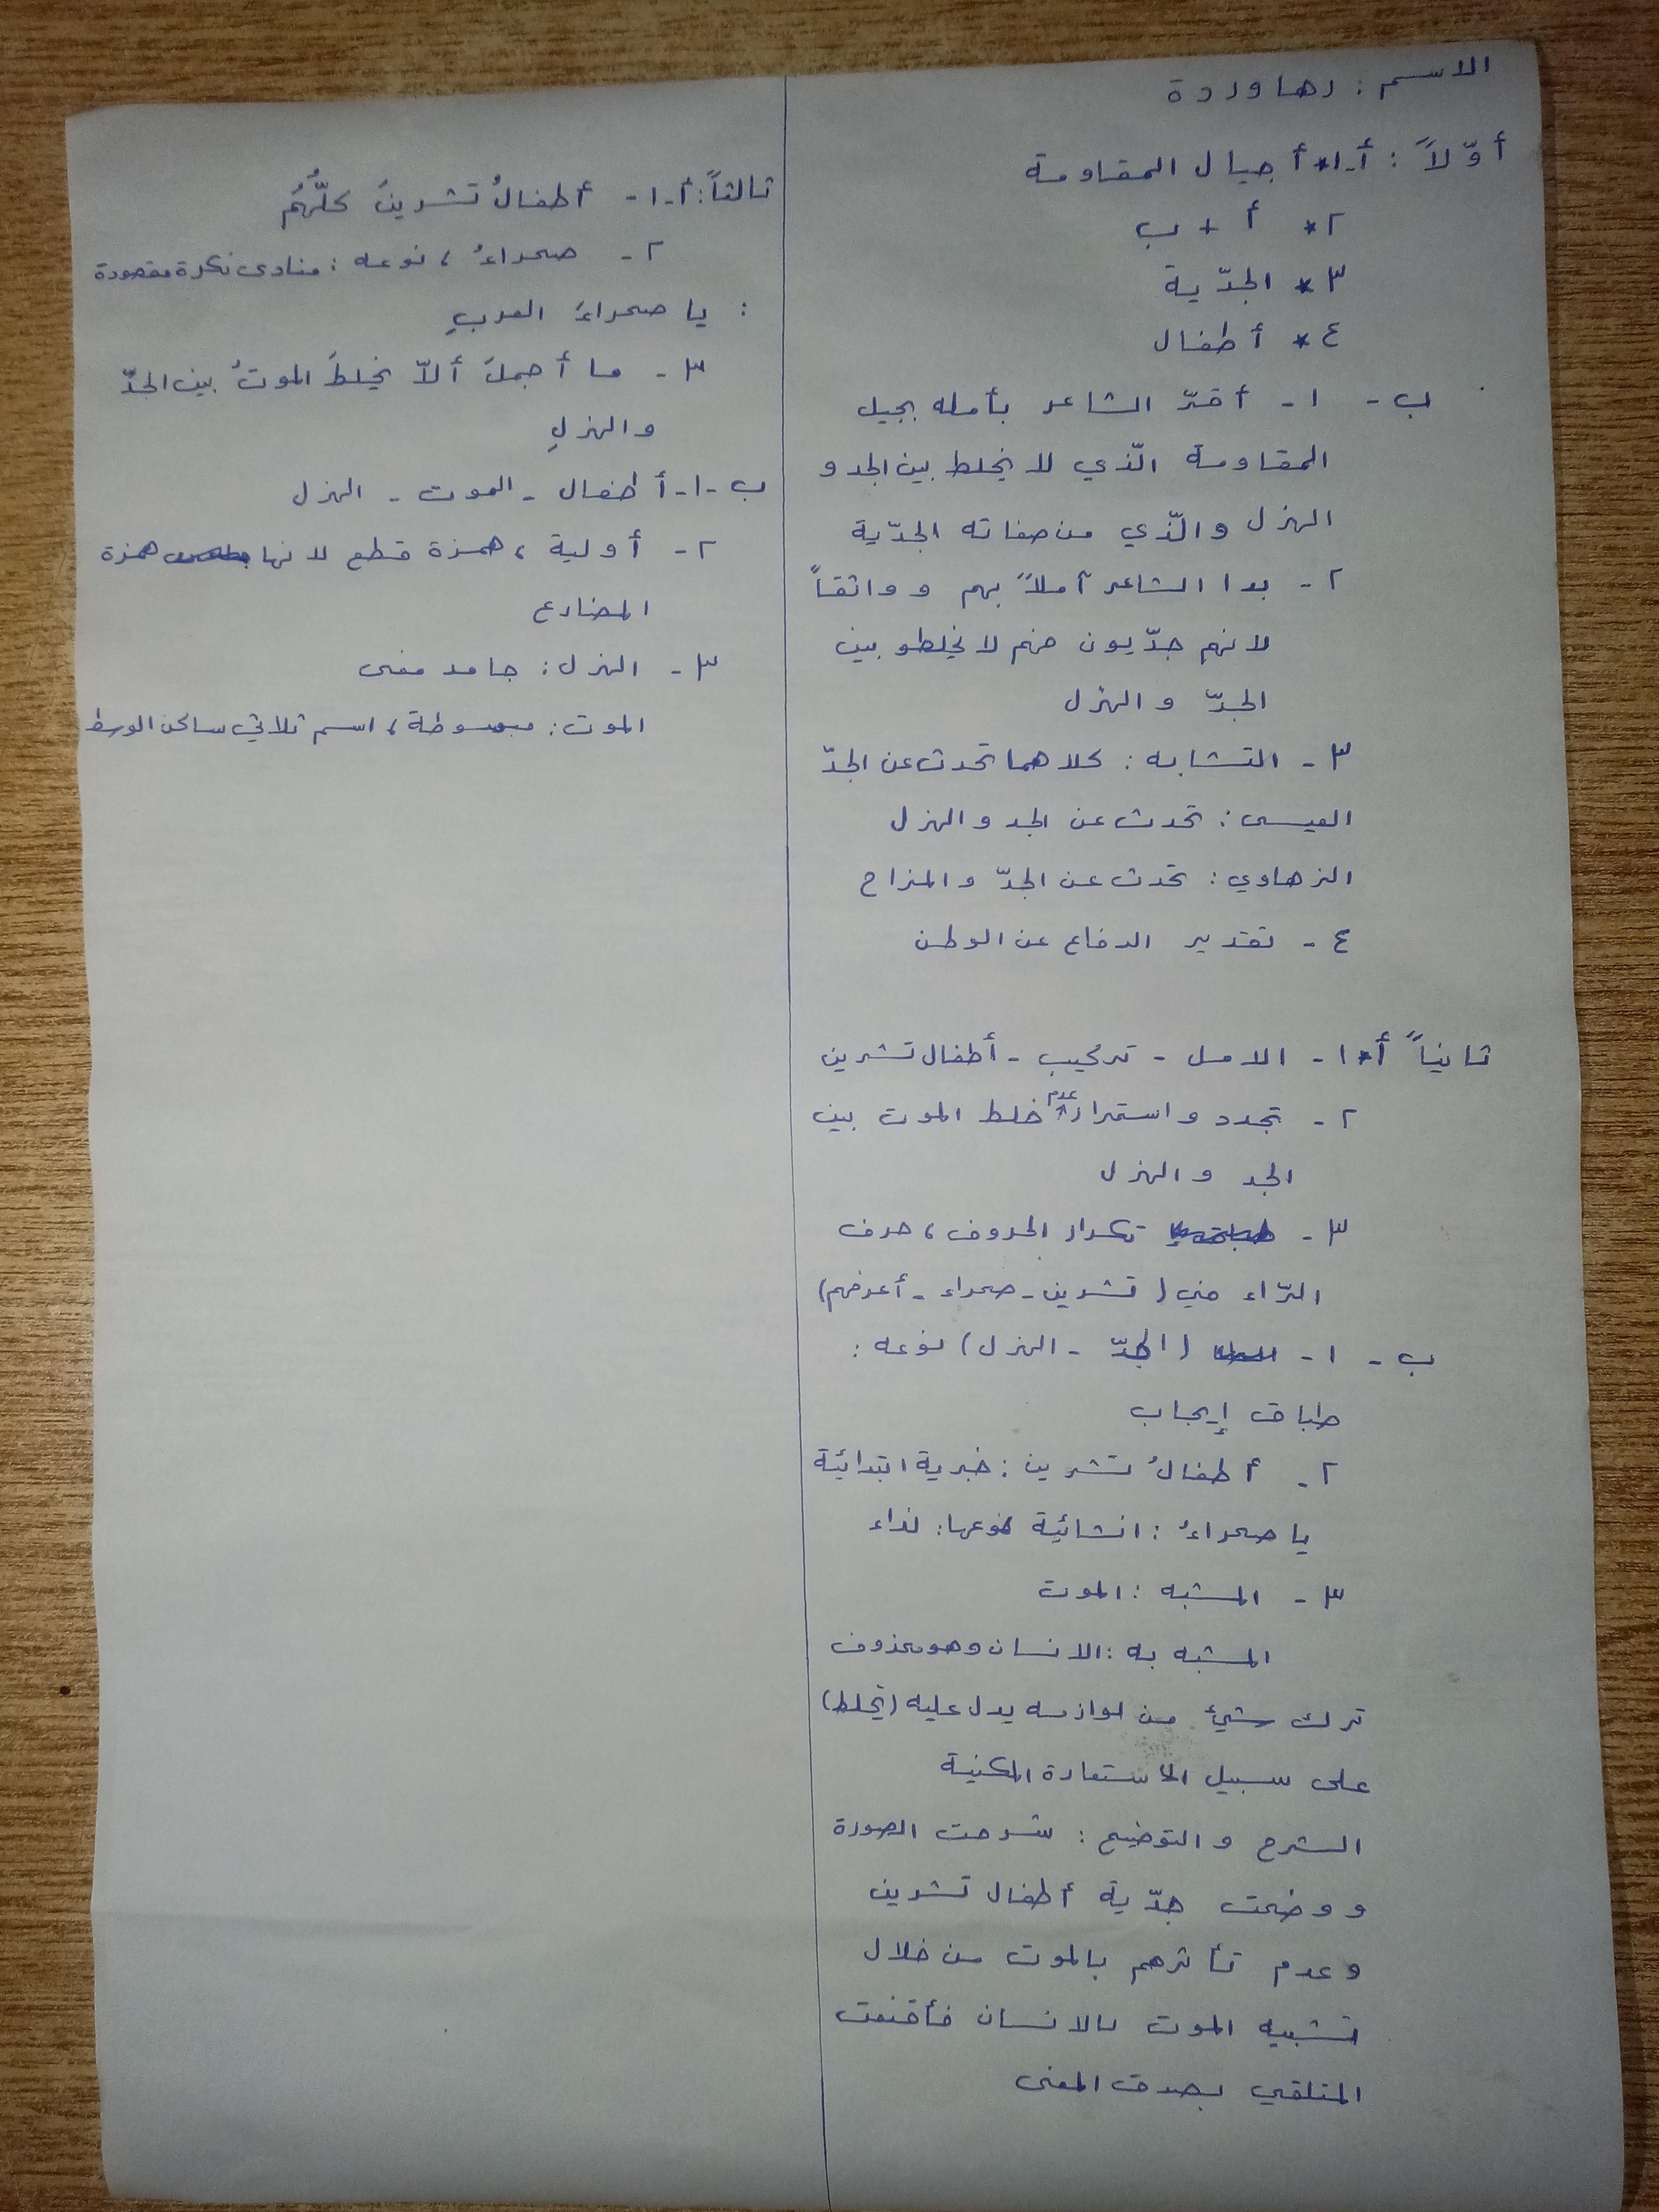 الاسم : رها وردة
أوّلاً : أ-١* أجيال المقاومة
٢* أ + ب
٣* الجدّية
٤* أطفال
ب - ١ - أقرّ الشاعر بأمله بجيل
المقاومة الّذي لا يخلط بين الجد و
الهزل والّذي من صفاته الجدّية
٢ - بدا الشاعر آملاً بهم وواثقاً
لانهم جدّيون فهم لا يخلطو بين
الجدّ و الهزل
٣ - التشابه : كلاهما تحدث عن الجدّ
العيسى : تحدث عن الجد و الهزل
الزهاوي : تحدث عن الجدّ و المزاح
٤ - تقدير الدفاع عن الوطن
ثانياً أ* ١ - الامل - تركيب - أطفال تشرين
٢ - تجدد و استمرار عدم خلط الموت بين
الجد و الهزل
٣ - تكرار الحروف ، حرف
الرّاء في ( تشرين - صحراء - أعرفهم )
ب - ١ - ( الجدّ - الهزل ) نوعه :
طباق إيجاب
٢ - أطفالُ تشرين : خبرية ابتدائية
يا صحراءُ : انشائية نوعها : نداء
٣ - المشبه : الموت
المشبه به : الانسان وهو محذوف
ترك شيئ من لوازمه يدل عليه ( يخلط )
على سبيل الاستعارة المكنية
الشرح و التوضيح : شرحت الصورة
ووضحت جدّية أطفال تشرين
وعدم تأثرهم بالموت من خلال
تشبيه الموت بالانسان فأقنعت
المتلقي بصدق المعنى
ثالثاً : أ-١ - أطفالُ تشرينَ كلُّهُمُ
٢ - صحراءُ ، نوعه : منادى نكرة مقصودة
: يا صحراءَ العربِ
٣ - ما أجملَ ألاّ يخلطَ الموتُ بين الجدِّ
والهزلِ
ب - ١ - أطفال - الموت - الهزل
٢ - أولية ، همزة قطع لانها همزة
المضارع
٣ - الهزل : جامد معنى
الموت : مبسوطة ، اسم ثلاثي ساكن الوسط